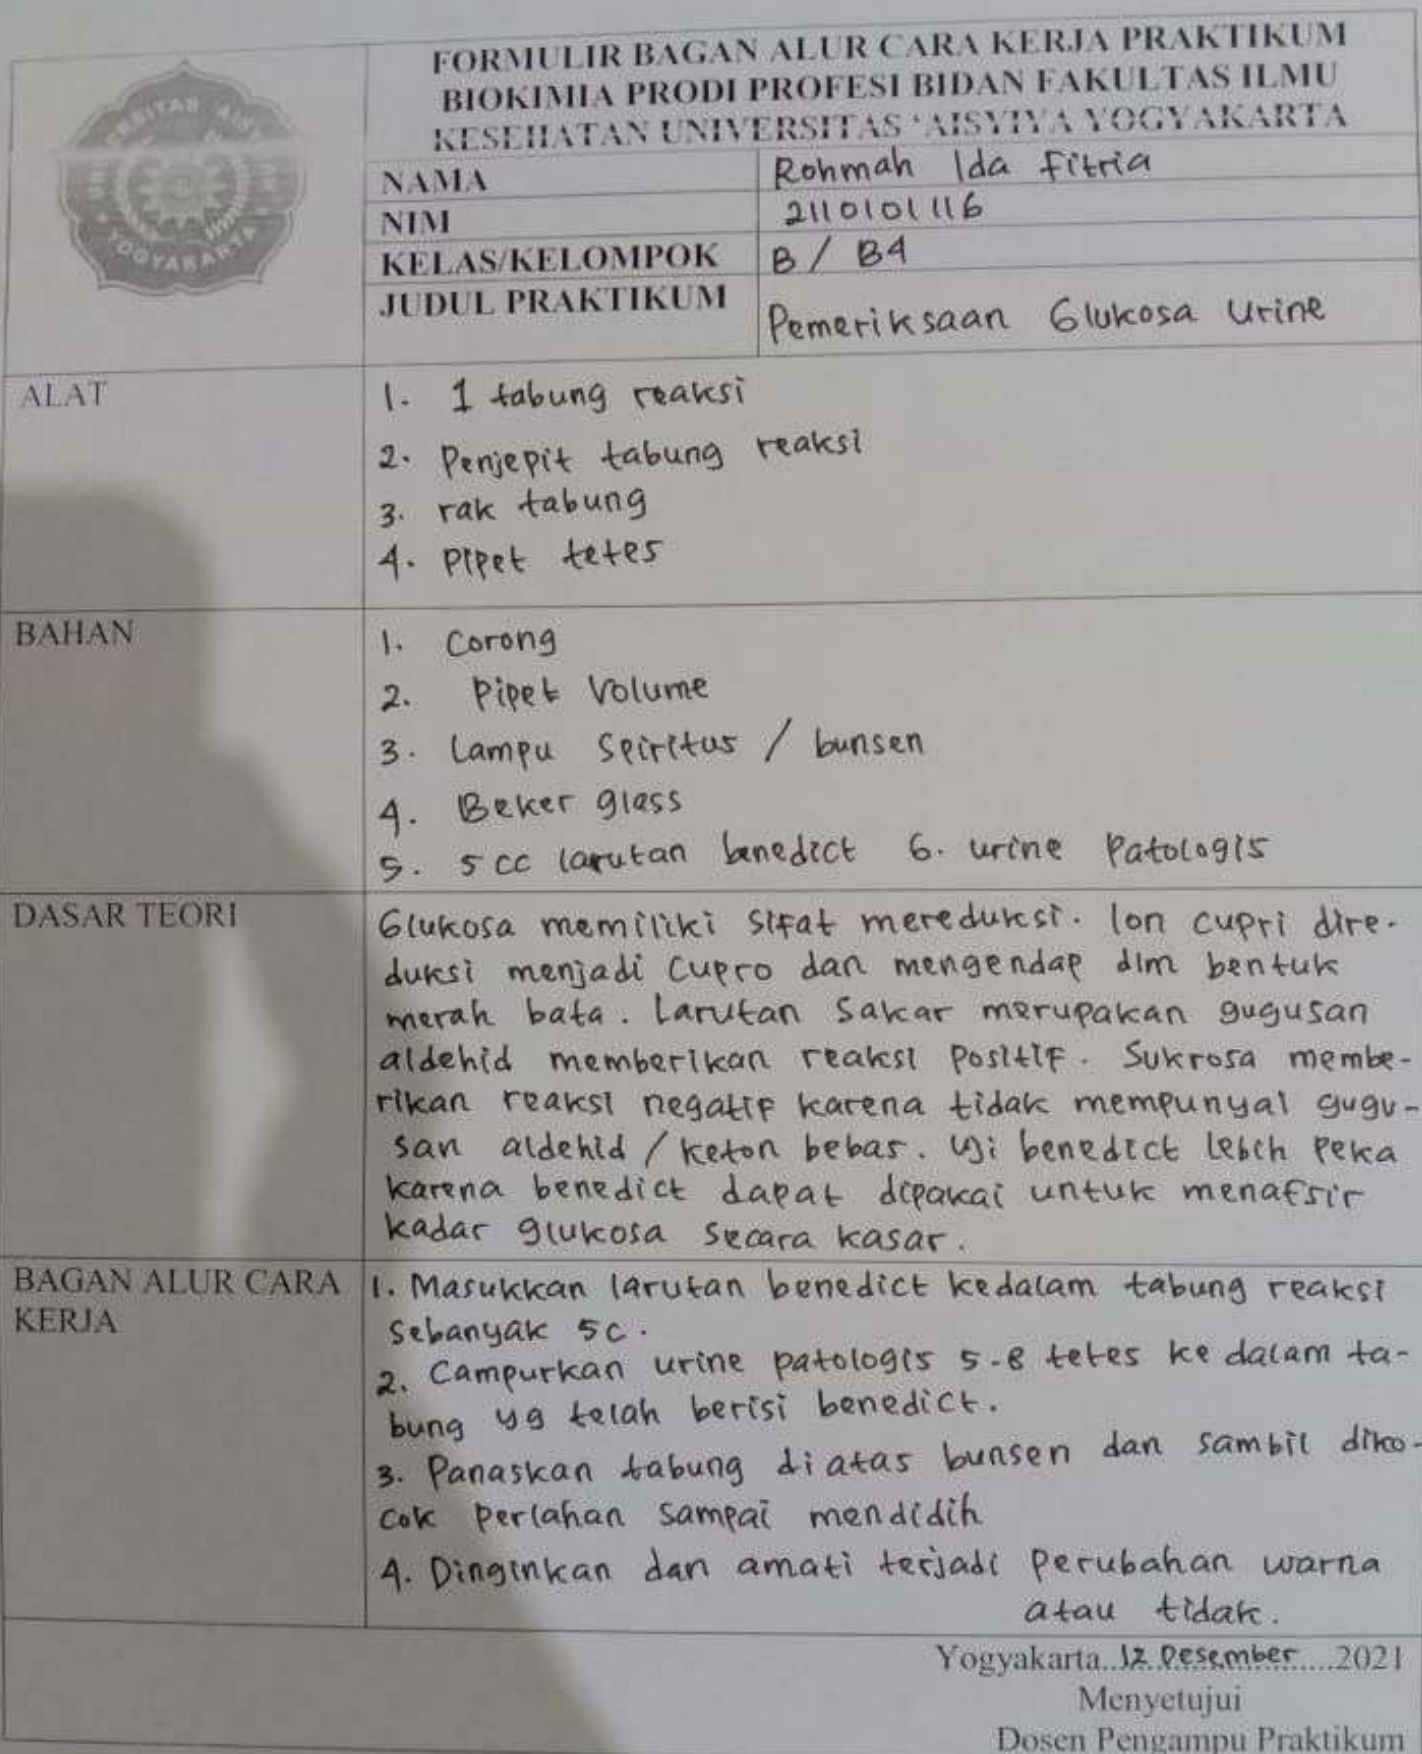 FORMULIR BAGAN ALUR CARA KERJA PRAKTIKUM
BIOKIMIA PRODI PROFESI BIDAN FAKULTAS ILMU
KESEHATAN UNIVERSITAS 'AISYIYA YOGYAKARTA
NAMA Rohmah Ida Fitria
NIM 2110101116
KELAS/KELOMPOK B / B4
JUDUL PRAKTIKUM Pemeriksaan Glukosa Urine
YOGYAKARTA
ALAT
1. 1 tabung reaksi
2. Penjepit tabung reaksi
3. rak tabung
4. Pipet tetes
BAHAN
1. Corong
2. Pipet Volume
3. Lampu Spiritus / bunsen
4. Beker glass
5. 5 cc larutan benedict 6. urine Patologis
DASAR TEORI
Glukosa memiliki sifat mereduksi. Ion cupri dire-
duksi menjadi cupro dan mengendap dlm bentuk
merah bata. Larutan Sakar merupakan gugusan
aldehid memberikan reaksi Positif. Sukrosa membe-
rikan reaksi negatif karena tidak mempunyai gugu-
san aldehid / keton bebas. Uji benedict lebih Peka
karena benedict dapat dipakai untuk menafsir
kadar glukosa secara kasar.
BAGAN ALUR CARA
KERJA
1. Masukkan larutan benedict kedalam tabung reaksi
Sebanyak 5c.
2. Campurkan urine patologis 5-8 tetes ke dalam ta-
bung yg telah berisi benedict.
3. Panaskan tabung diatas bunsen dan sambil diko-
cok perlahan sampai mendidih
4. Dinginkan dan amati terjadi perubahan warna
atau tidak.
Yogyakarta..12 Desember....2021
Menyetujui
Dosen Pengampu Praktikum